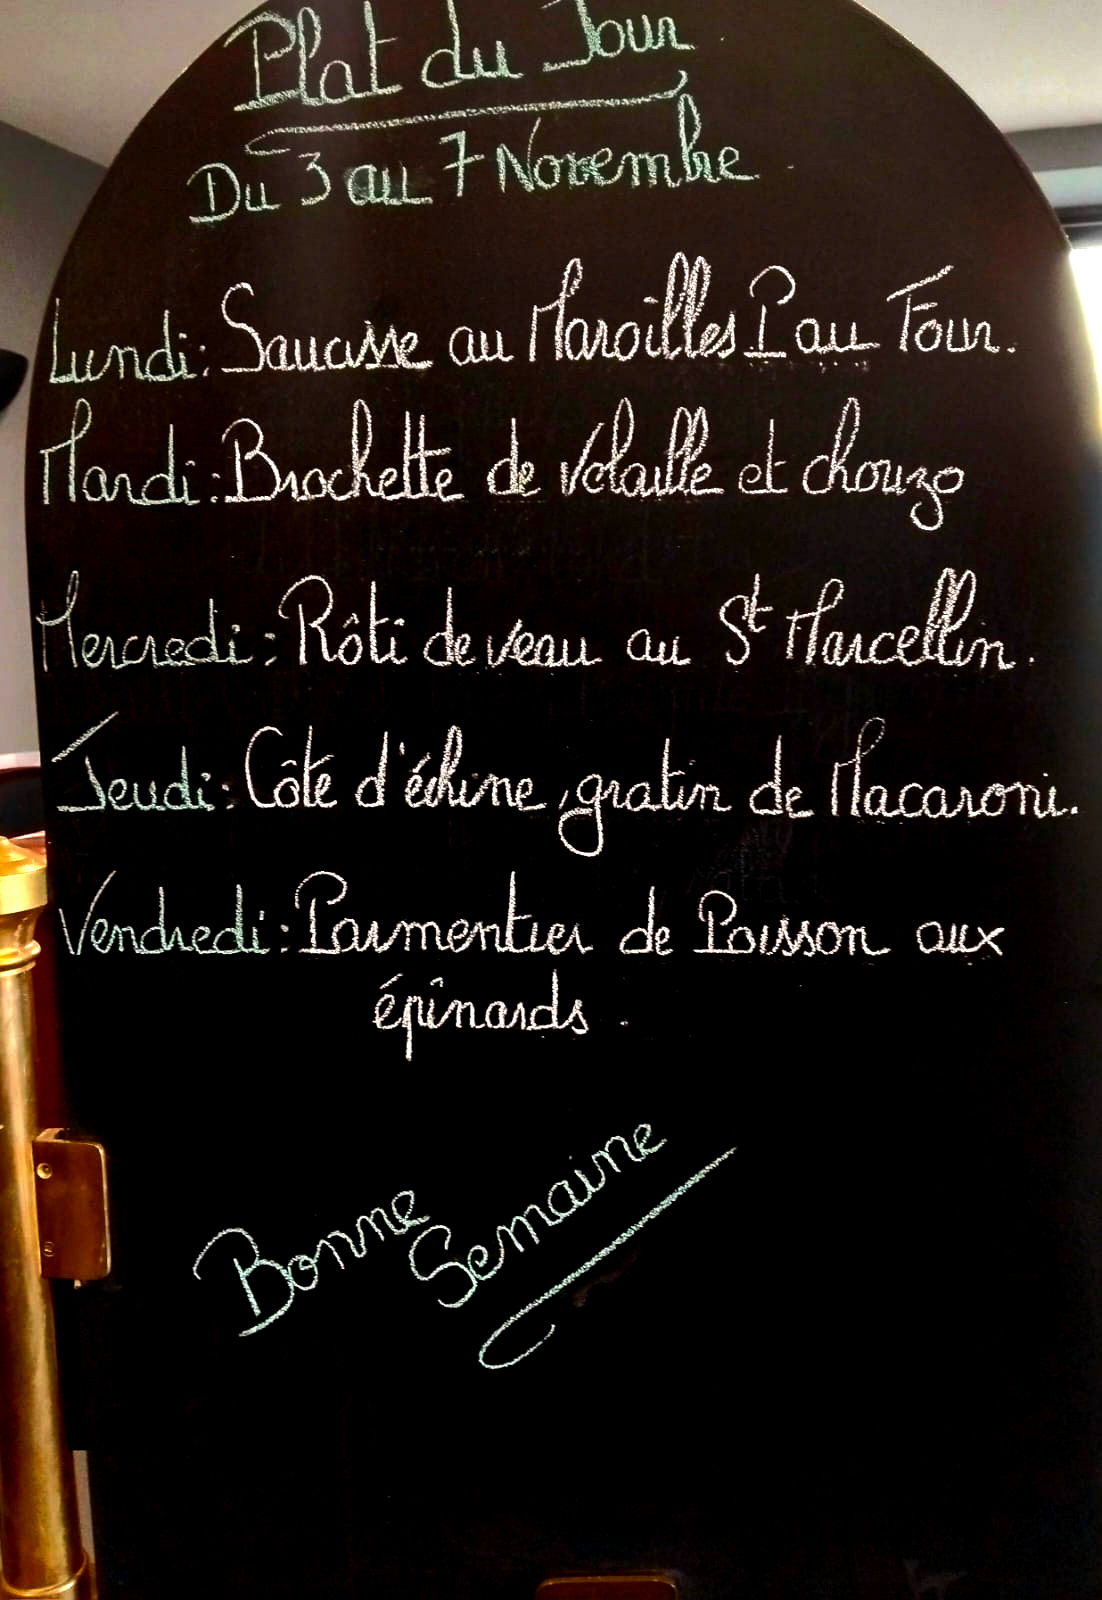 Plat du Jour
Du 3 au 7 Novembre
Lundi: Saucisse au Maroilles P au Four.
Mardi: Brochette de Volaille et chorizo
Mercredi: Rôti de veau au St Marcellin.
Jeudi: Côte d'échine, gratin de Macaroni.
Vendredi: Parmentier de Poisson aux
épinards.
Bonne
Semaine